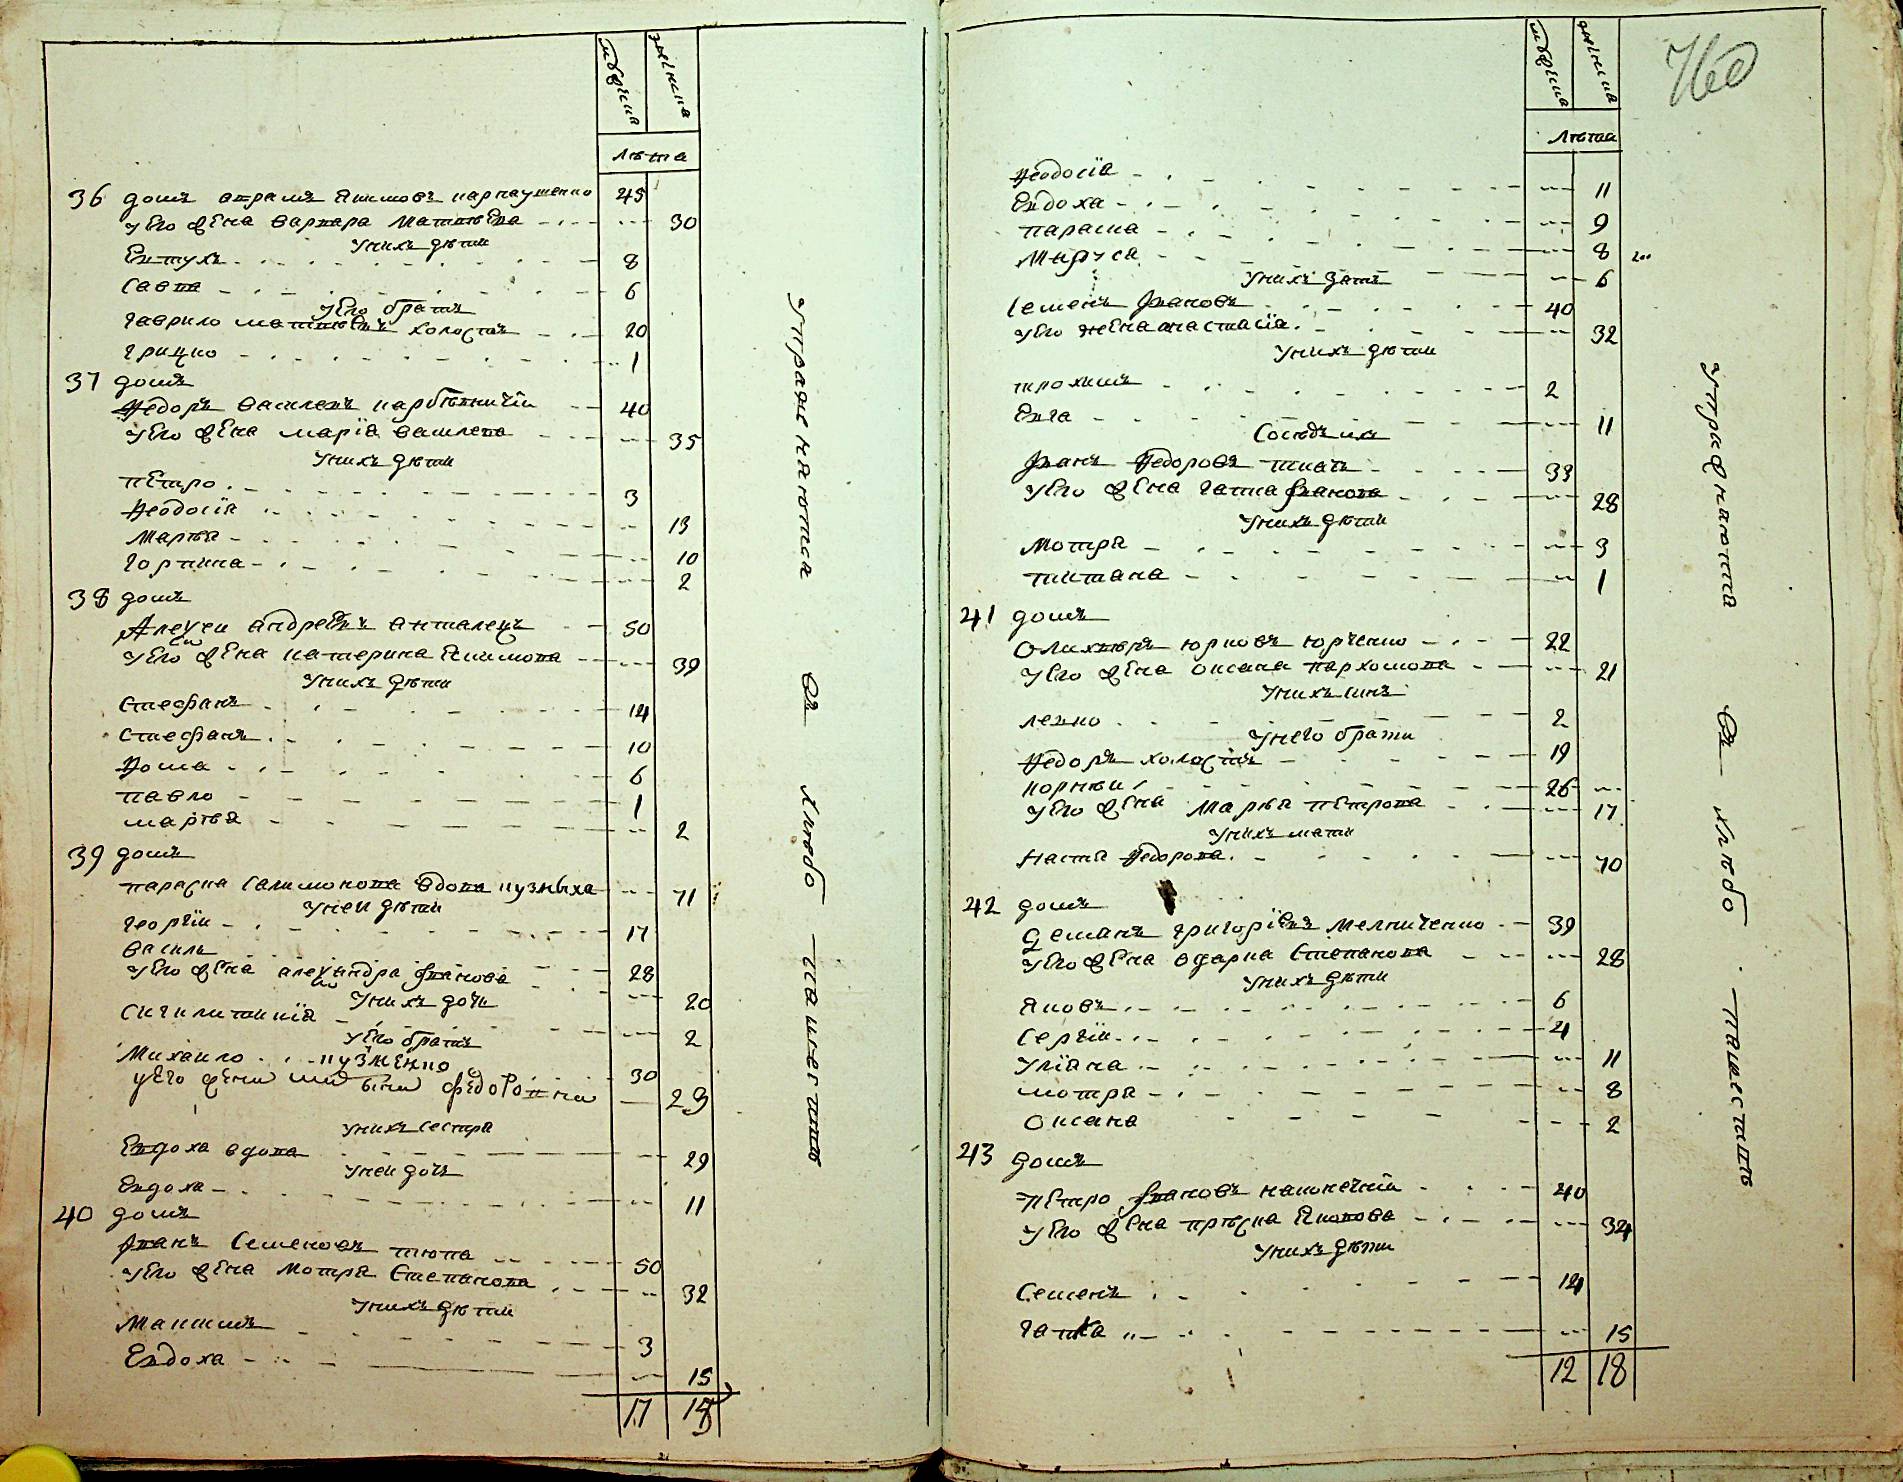 мужска
женска
лѣта
36 домъ авраамъ якимовъ карпаушенко 45
уєго жєна варвара Матвѣєва 30
Унихъ дѣти
Євтухъ 8
Савва 6
уєго братъ
Гаврило матвѣєвъ холостъ 20
грицко 1
37 домъ
Ѳедоръ василевъ карбовничїй 40
уєго жєна марїя василева 35
Унихъ дѣти
пєтро 3
Ѳеодосїя 13
Марѳа 10
горпина 2
38 домъ
Алеѯей андрєєвъ 50
уєго жєна катерина Якимова 39
Унихъ дѣти
Стефанъ 14
Стефанъ 10
Ѳома 6
павло 1
марѳа 2
39 домъ
параска вдова кузмиха 71
Унеи дѣти
Георгїи 17
василь 28
уєго жєна алеѯандра иванова 20
Унихъ дочь
2
уєго братъ
Михаило кузмєнко 30
уєго жена ѳєдоровна 29
унихъ сестра
Євдоха вдова 29
Унеи дочь
Євдоха 11
40 домъ
Іванъ Семеновъ тюпа 50
уєго жєна Мотря Степанова 32
Унихъ дѣти
Макимъ 3
Євдоха 15
17
Упражняются въ хлѣбопашествѣ
760
мужска
женска
лѣта
Ѳеодосїя 11
Євдоха 9
параска 8
Маруса 6
Унихъ зять
Семенъ Ивановъ 40
уєго жєна анастасїя 32
Унихъ дѣти
трохимъ 2
Євга 11
Сосѣдъ ихъ
Иванъ Ѳедоровъ ткачъ 33
уєго жєна гапка Иванова 28
Унихъ дѣти
Мотря 3
титяна 1
41 домъ
Олихвѣръ юрковъ юрченко 22
уєго жєна оксана пархомова 21
Унихъ синъ
левко 2
Унего брати
Ѳедоръ холостъ 19
корнѣи 26
уєго жєна Марѳа пєтрова 17
Унихъ мати
Настя Ѳедорова 70
42 домъ
Демянъ григорїєвъ мелниченко 39
уєго жєна одарка Степанова 28
Унихъ дѣти
Яковъ 6
Сергїи 4
Улїяна 11
мотря 8
Оксана 2
43 домъ
Пєтро Ивановъ наконечнїй 40
уєго жєна прѣска Яковова 34
Унихъ дѣти
Семенъ 14
гапка 15
12 18
Упражняются въ хлѣбопашествѣ